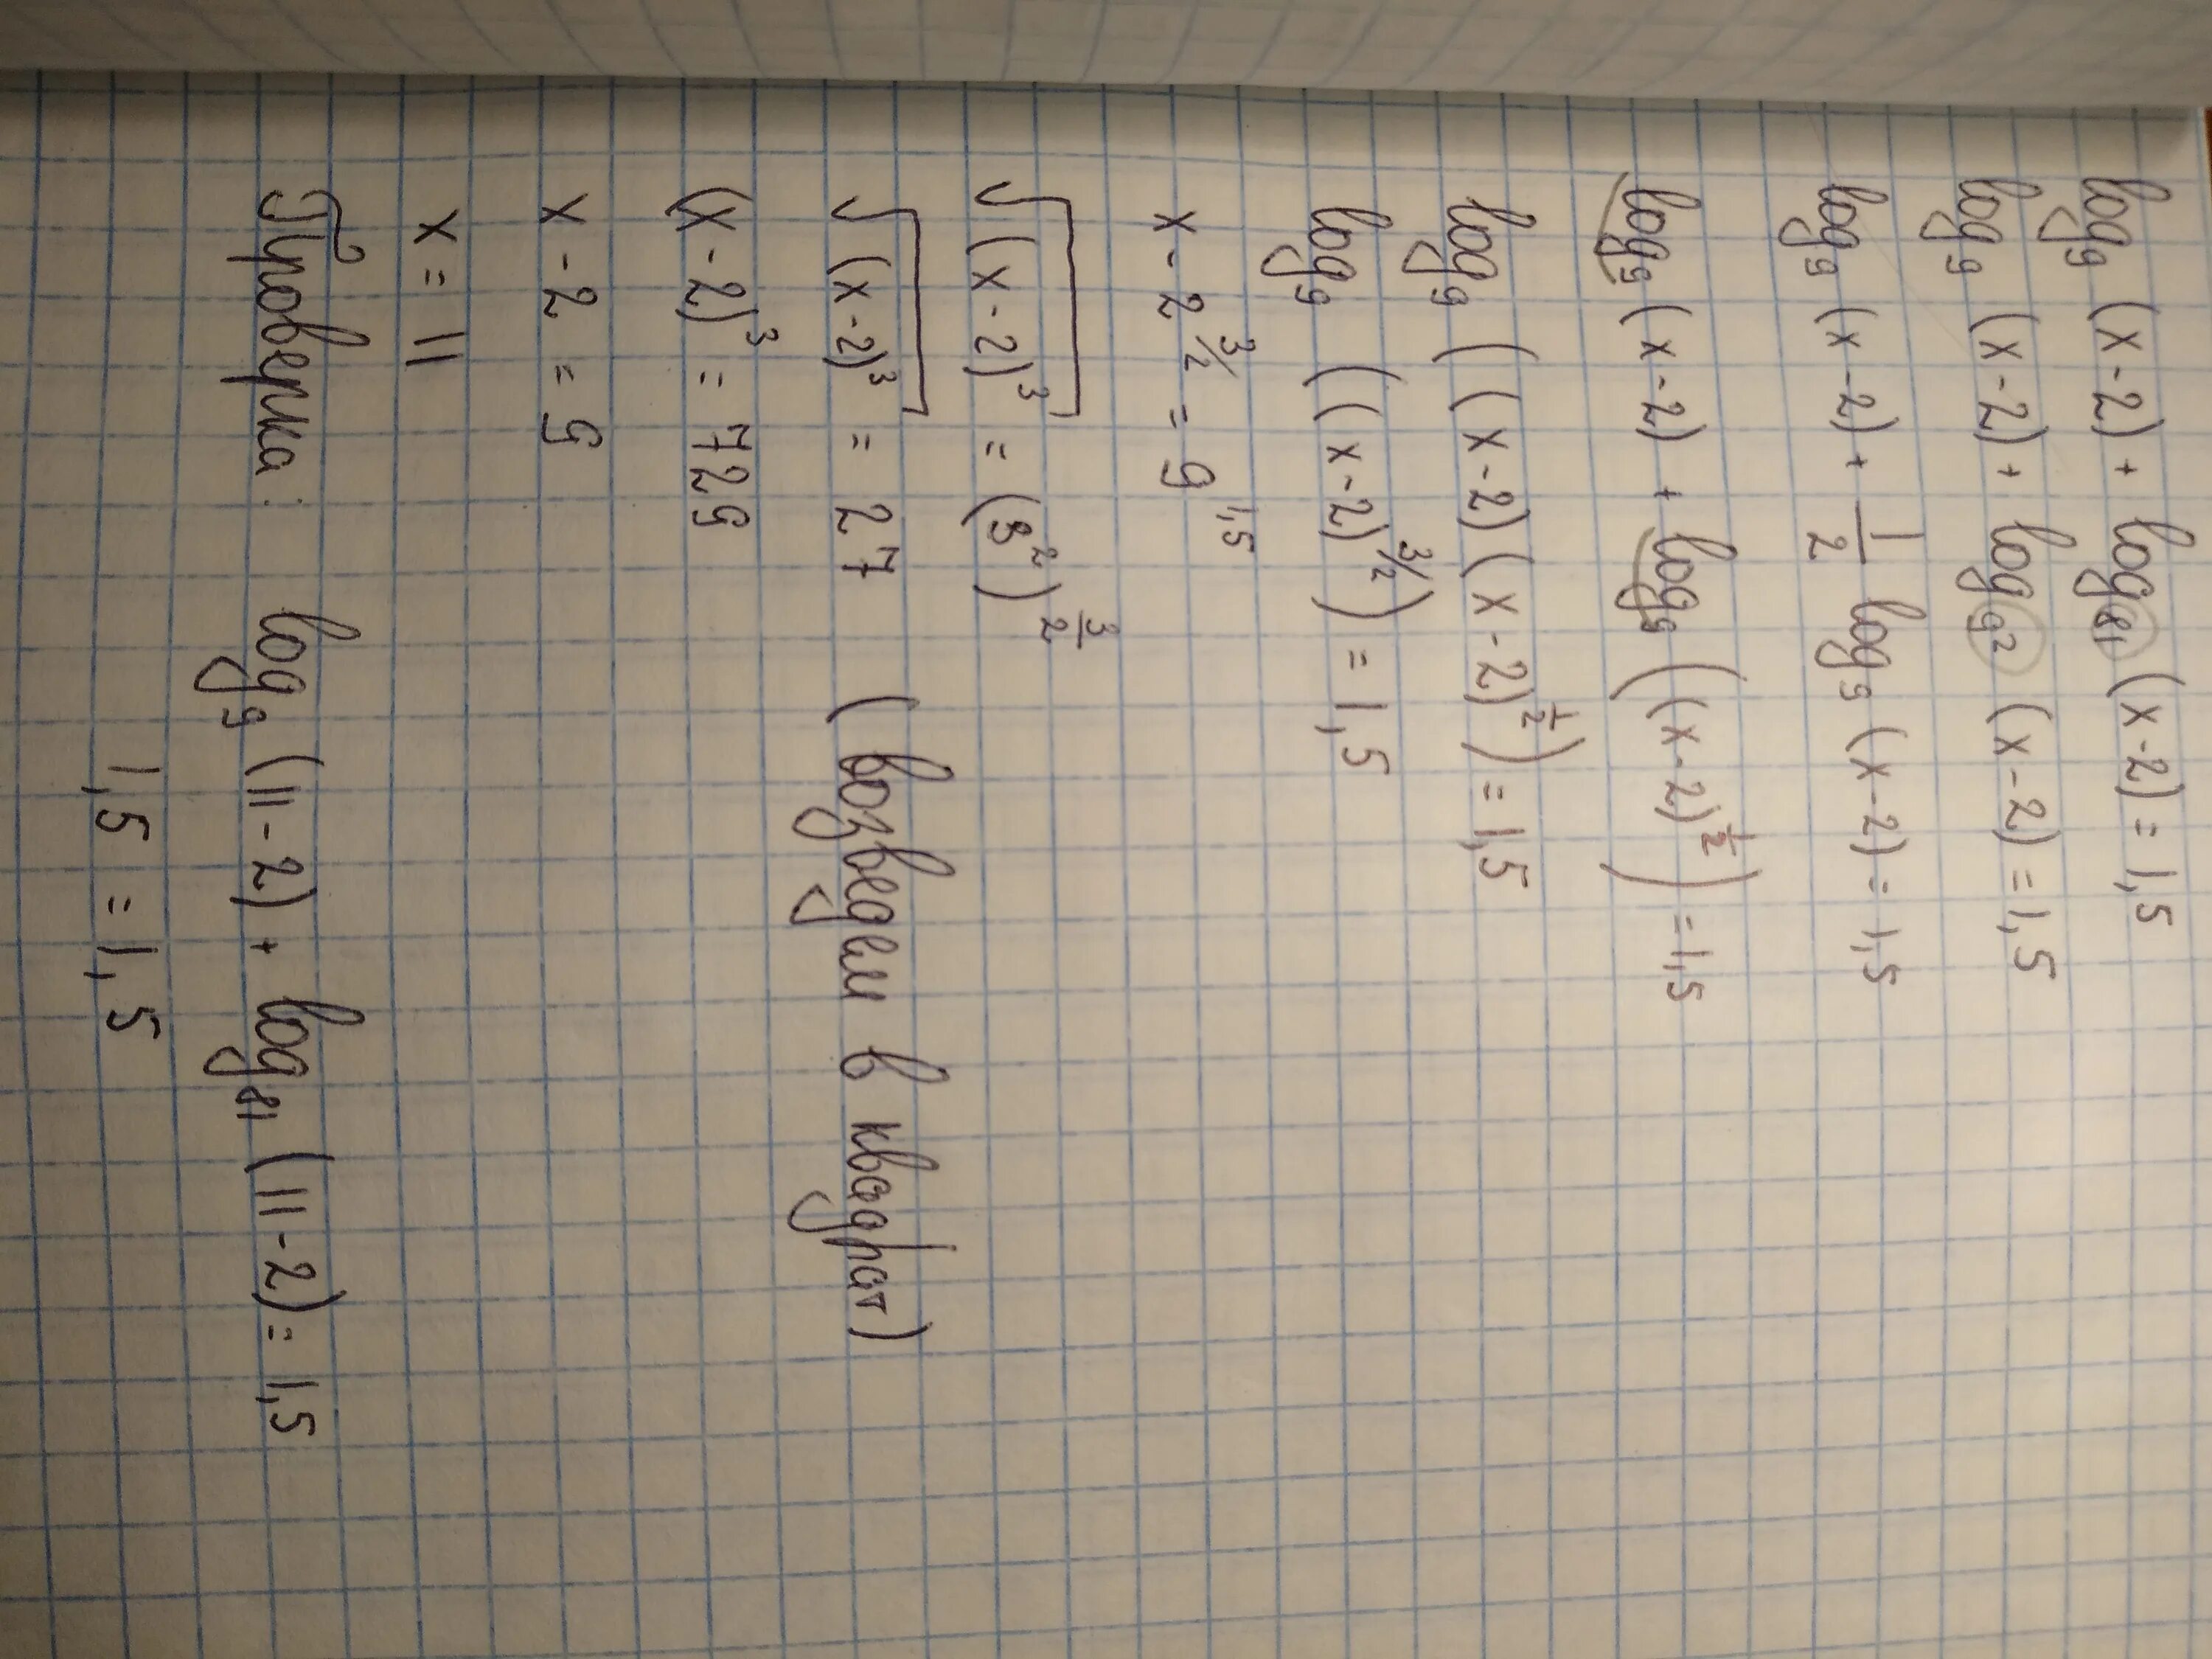 log₉ (x-2) + log₈₁ (x-2) = 1,5
log₉ (x-2) + log₉² (x-2) = 1,5
log₉ (x-2) + 1/2 log₉ (x-2) = 1,5
log₉ (x-2) + log₉ ((x-2)^1/2) = 1,5
log₉ ((x-2)(x-2)^1/2) = 1,5
log₉ ((x-2)^3/2) = 1,5
x-2^3/2 = 9^1,5
√(x-2)³ = (3²)^3/2
√(x-2)³ = 27 (возведем в квадрат)
(x-2)³ = 729
x-2 = 9
x = 11
Проверка: log₉ (11-2) + log₈₁ (11-2) = 1,5
1,5 = 1,5